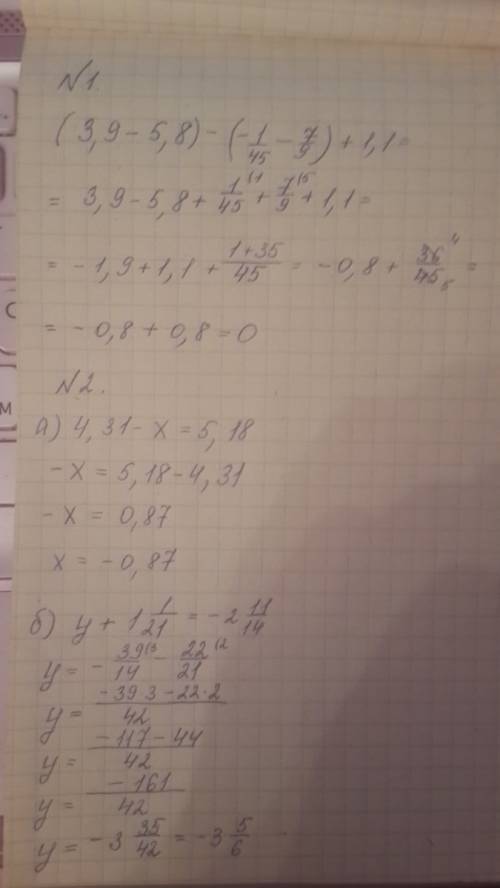 №1.
(3,9 - 5,8) - (-1/45 - 7/9) + 1,1 =
= 3,9 - 5,8 + 1/45 (1 + 7/9 (5 + 1,1 =
= -1,9 + 1,1 + 1+35/45 = -0,8 + 36/45 4 5 =
= -0,8 + 0,8 = 0
№2.
а) 4,31 - x = 5,18
-x = 5,18 - 4,31
-x = 0,87
x = -0,87
б) y + 1 1/21 = -2 11/14
y = -39/14 (3 - 22/21 (2
y = -39·3 - 22·2/42
y = -117 - 44/42
y = -161/42
y = -3 35/42 = -3 5/6